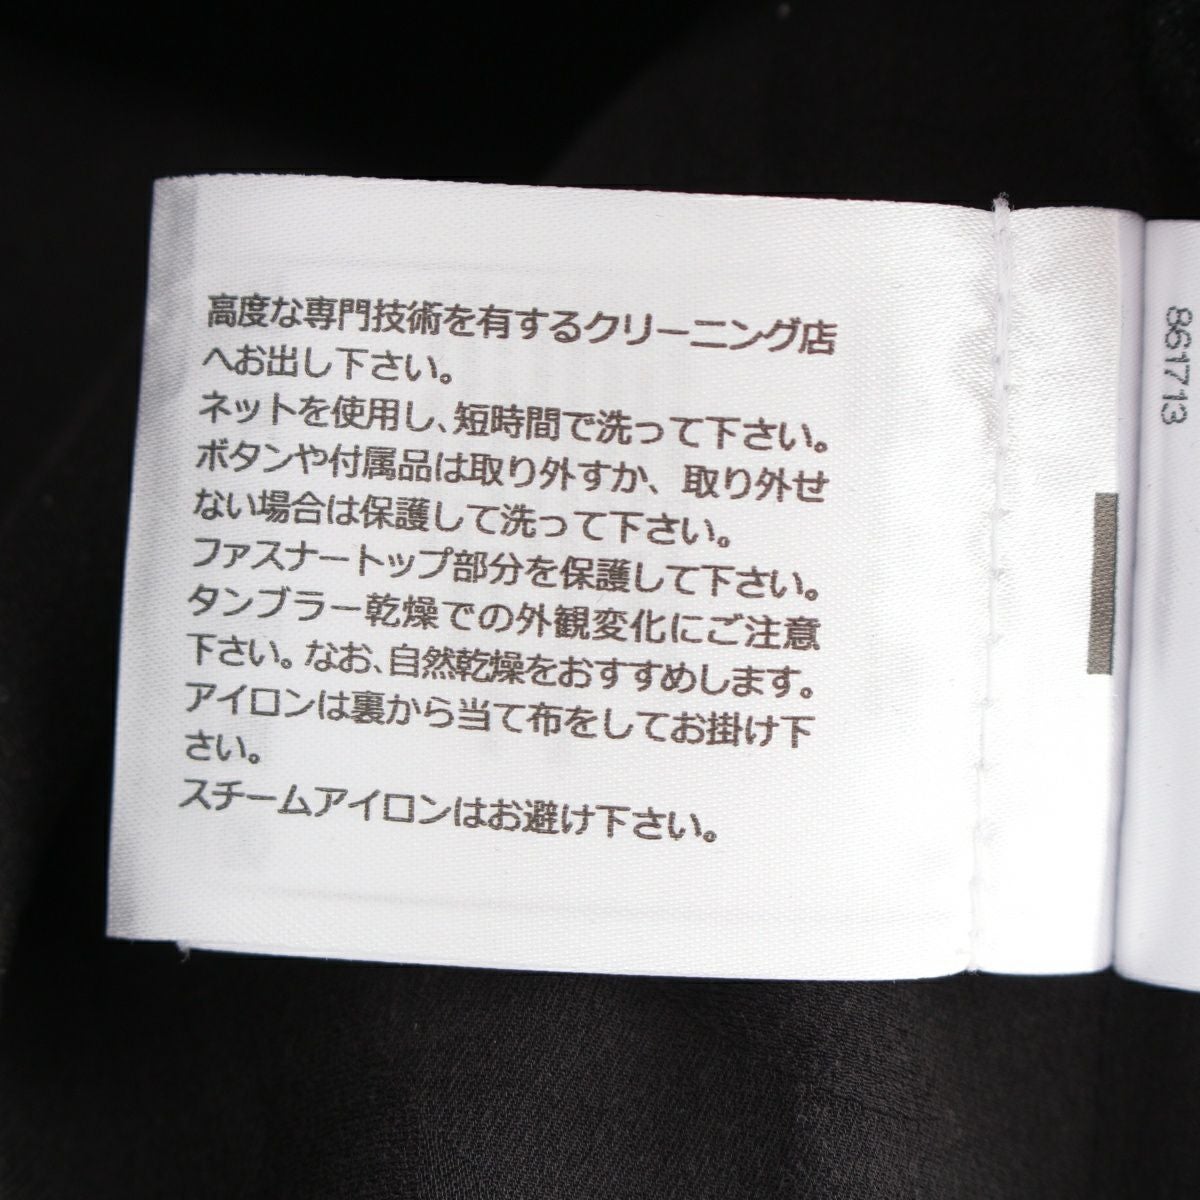 高度な専門技術を有するクリーニング店
へお出し下さい。
ネットを使用し、短時間で洗って下さい。
ボタンや付属品は取り外すか、取り外せ
ない場合は保護して洗って下さい。
ファスナートップ部分を保護して下さい。
タンブラー乾燥での外観変化にご注意
下さい。なお、自然乾燥をおすすめします。
アイロンは裏から当て布をしてお掛け下
さい。
スチームアイロンはお避け下さい。
861713